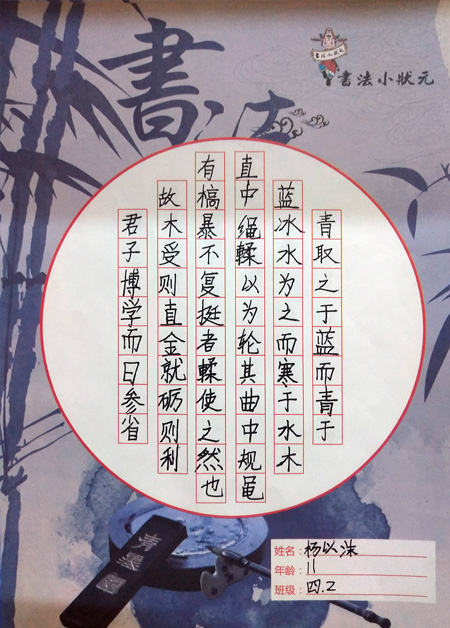 書法
書法小狀元
青取之于蓝而青于
蓝冰水为之而寒于水木
直中绳輮以为轮其曲中规黾
有槁暴不复挺者輮使之然也
故木受则直金就砺则利
君子博学而日参省
姓名:杨以
年龄:11
班级:四.2